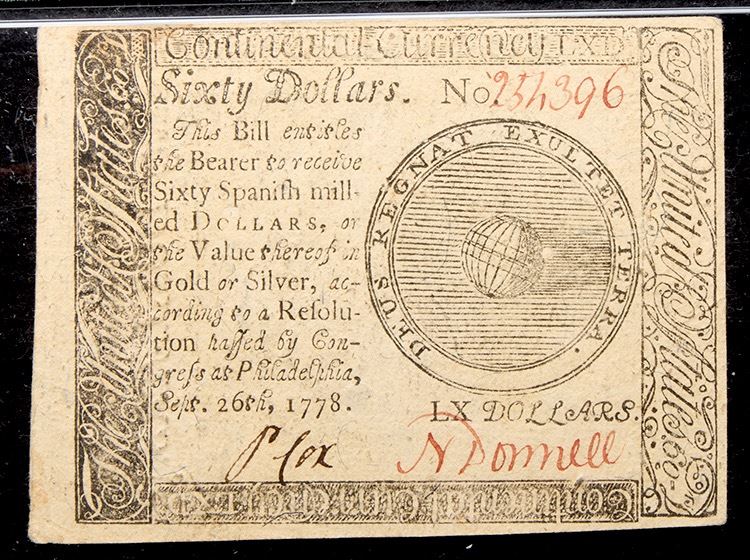 Continental Currency LXD
Sixty Dollars. No. 254396
This Bill entitles
the Bearer to receive
Sixty Spaniſh mill-
ed DOLLARS, or
the Value thereof in
Gold or Silver, ac-
cording to a Reſolu-
tion paſſed by Con-
greſs at Philadelphia,
Sept. 26th, 1778.
DEUS REGNAT EXULTET TERRA.
LX DOLLARS.
P Cox
N Donnell
The United States
The United States
Continental Currency